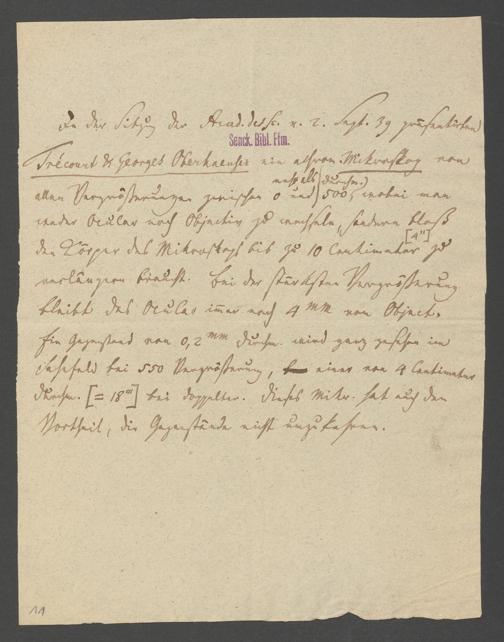 In der Sitzung der Acad. des Sc. v. 2. Sept. 39 präsentirten
Senck. Bibl. Ffm.
Trécourt & Georges Oberhaeuser ein achrom. Mikroskop von
allen Vergrößerungen zwischen 0 und 500, wobei man
(Durchm.)
weder Ocular noch Objectiv zu wechseln, sondern bloß
[4"]
den Körper des Mikroskops bis zu 10 Centimeter zu
verlängern braucht. Bei der stärksten Vergrößerung
bleibt das Ocular immer noch 4 mm vom Object.
Ein Gegenstand von 0,2 mm Durchm. wird ganz gesehen im
Sehefeld bei 550 Vergrößerung, einer von 4 Centimeter
Durchm. [= 18'''] bei doppelter. Dieses Mikr. hat auch den
Vortheil, die Gegenstände nicht umzukehren.
11